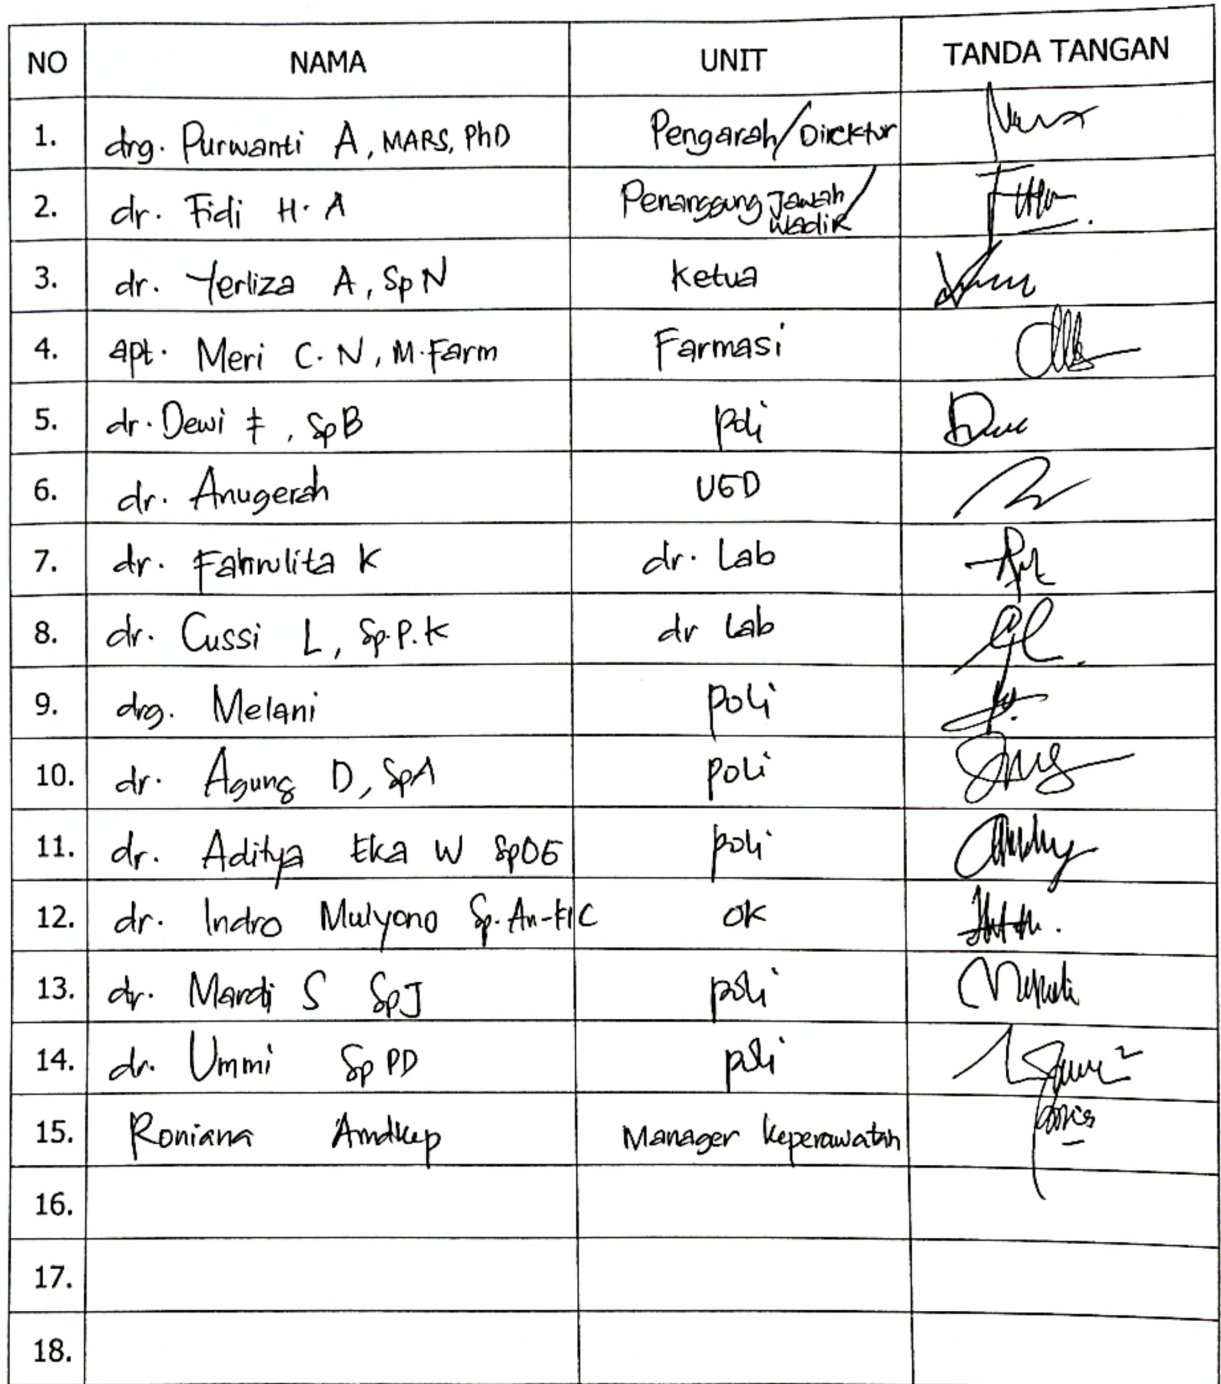 NO NAMA UNIT TANDA TANGAN
1. drg. Purwanti A, MARS, PhD Pengarah/Direktur
2. dr. Fidi H. A Penanggung Jawab/
Wadir
3. dr. Yerliza A, SpN Ketua
4. apt. Meri C. N, M.Farm Farmasi
5. dr. Dewi F, SpB poli
6. dr. Anugerah UGD
7. dr. K dr. Lab
8. dr. Cussi L, Sp.P.K dr Lab
9. drg. Melani poli
10. dr. Agung D, SpA poli
11. dr. Aditya Eka W SpOG poli
12. dr. Indro Mulyono Sp.An-KIC OK
13. dr. Mardi S SpJ poli
14. dr. Ummi SpPD poli
15. Roniana Amdkep Manager Keperawatan
16.
17.
18.